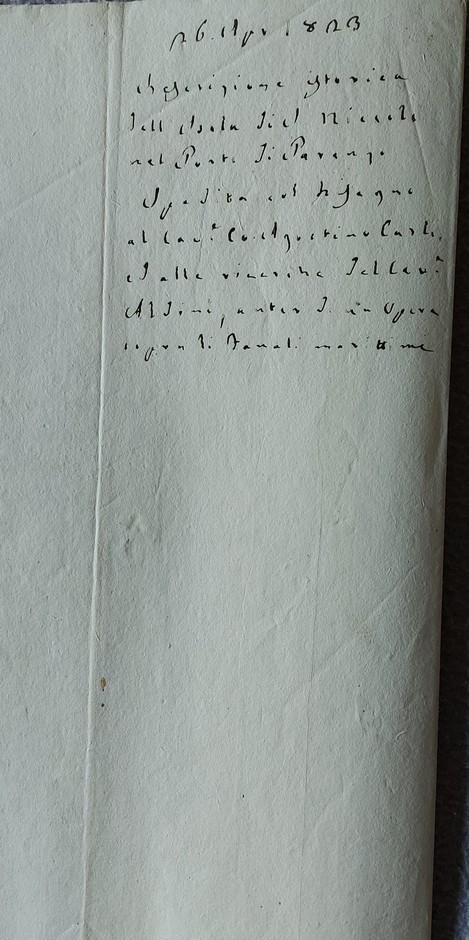 26. Apr. 1823
Descrizione istorica
dell Isola di S. Niccolò
nel Porto di Parenzo
Spedita col disegno
al Cav.e Co. Agostino Carli,
ed alle ricerche del Cav.e
Aldini, autor d. un Opera
sopra li Fanali maritimi